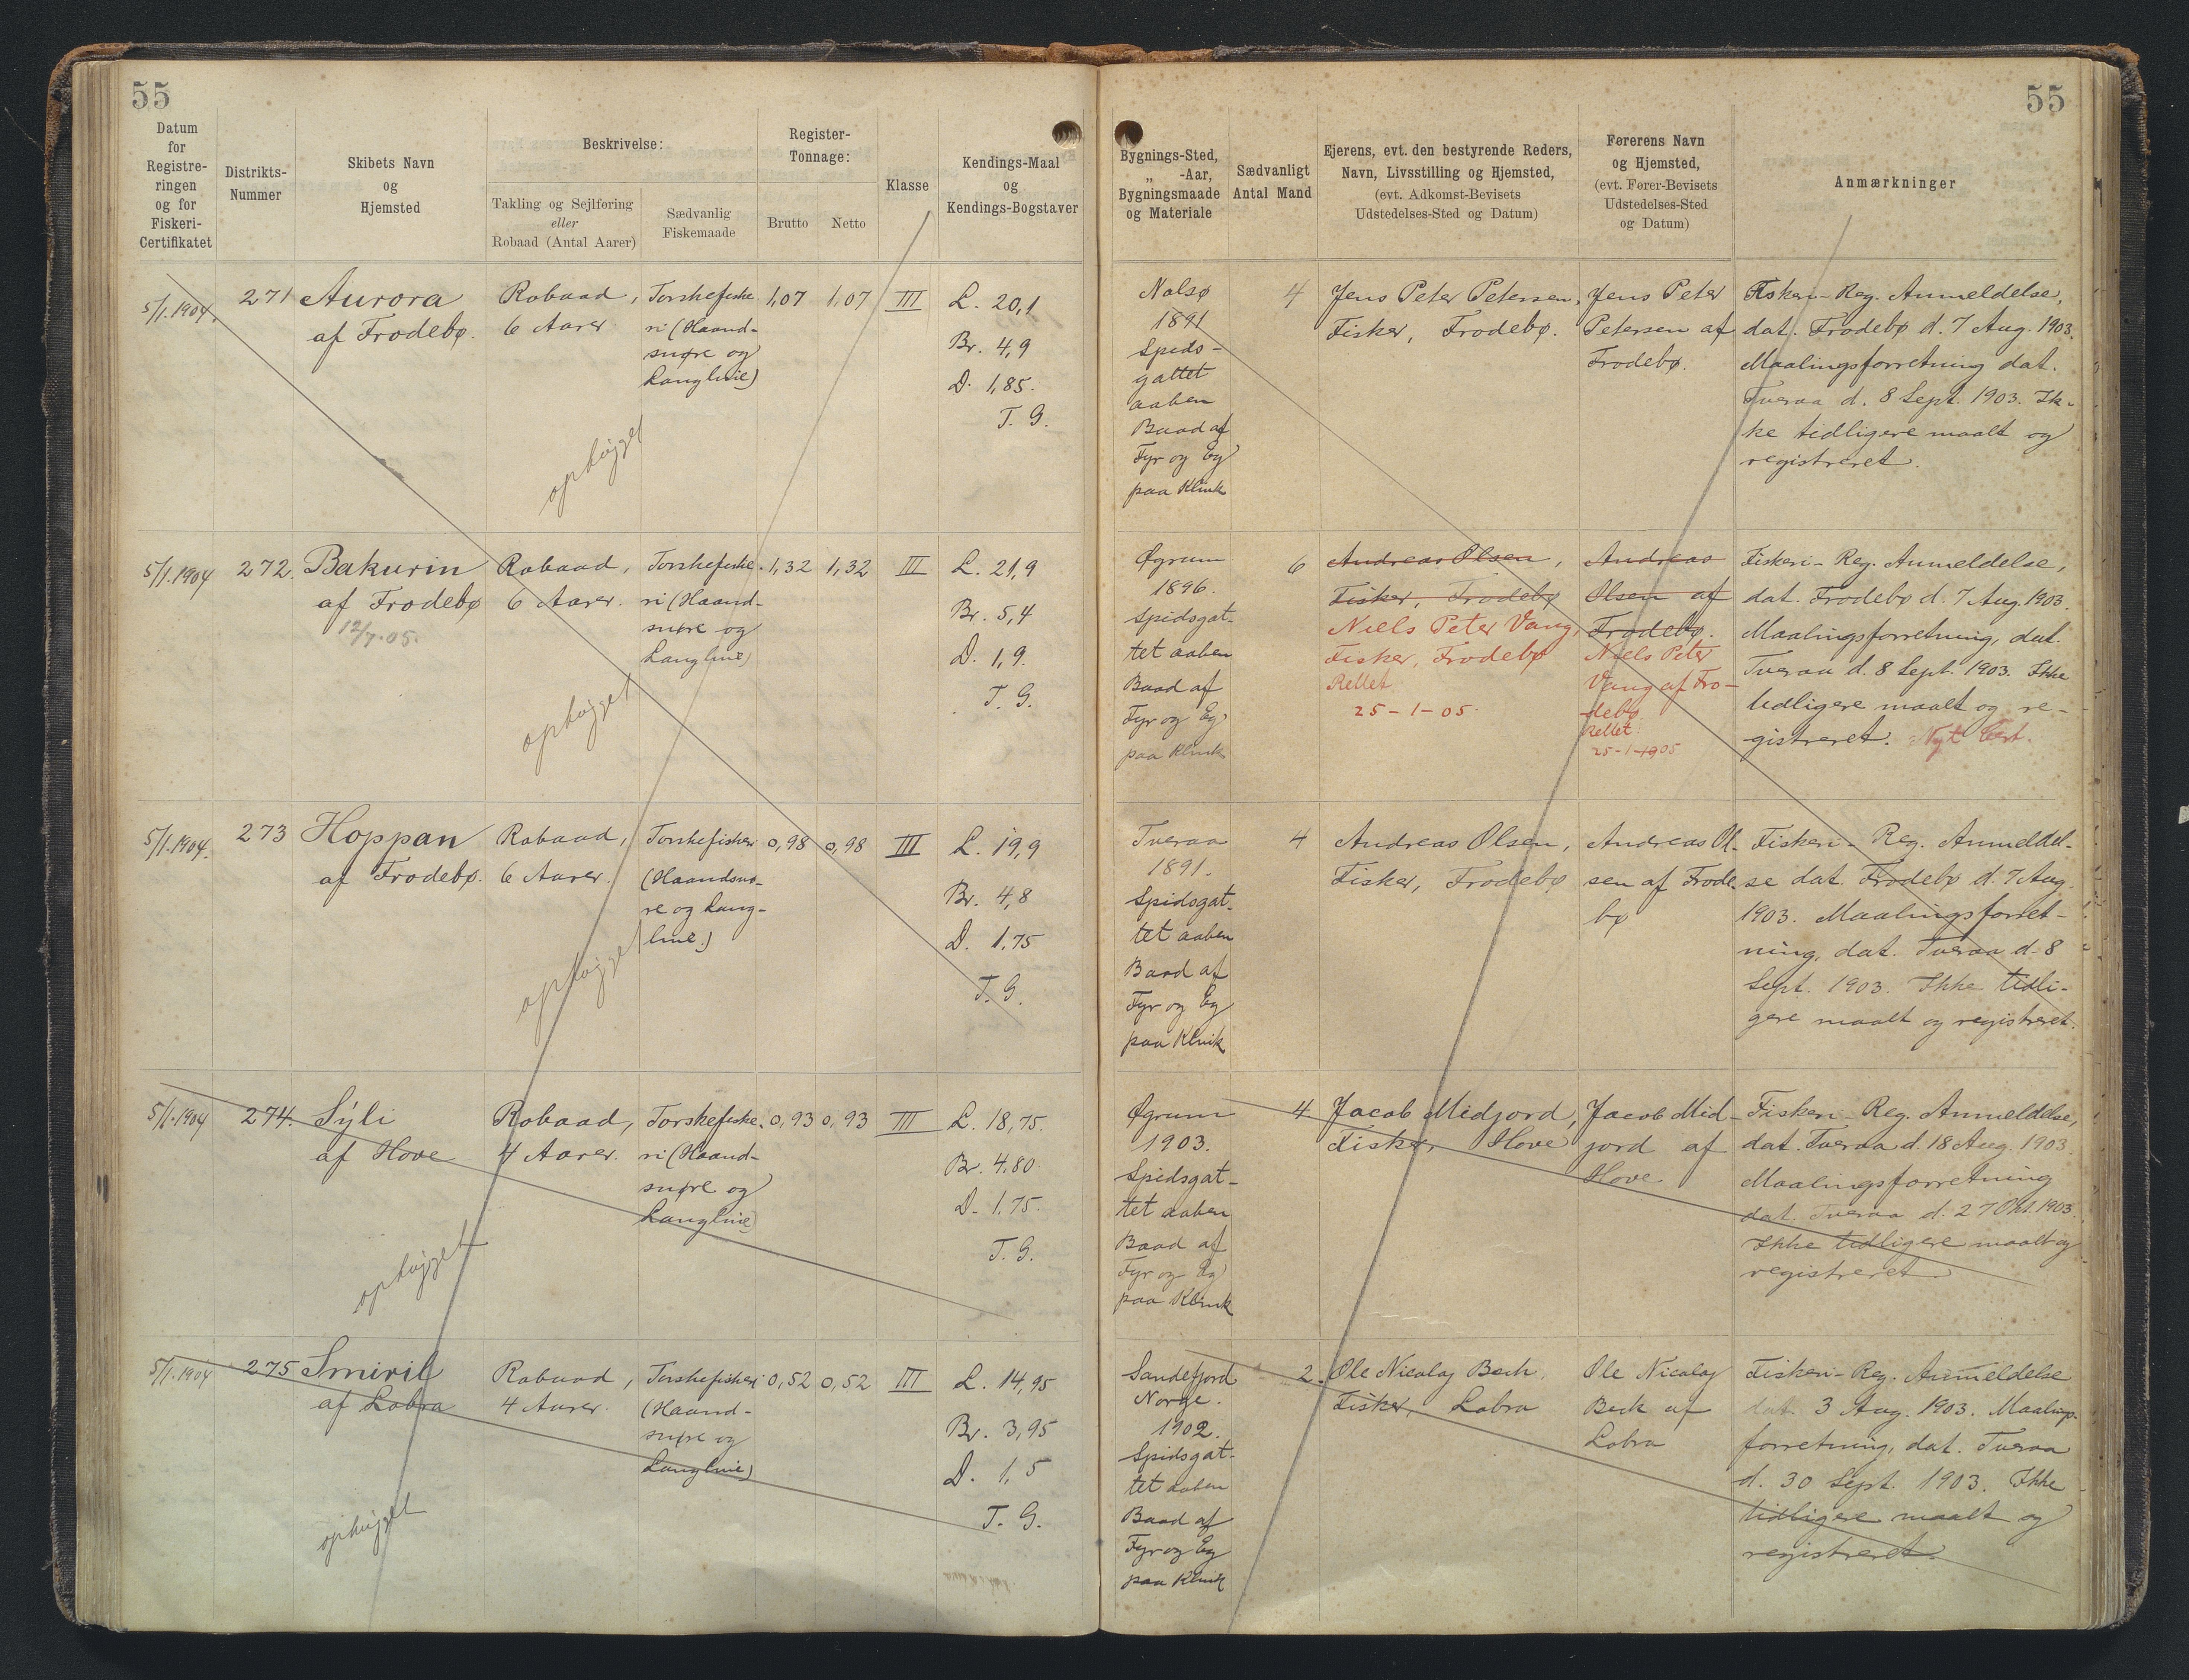 55
55
Datum
for
Registre-
ringen
og for
Fiskeri-
Certifikatet
Distrikts-
Nummer
Skibets Navn
og
Hjemsted
Beskrivelse:
Takling og Sejlføring
eller
Robaad (Antal Aarer)
Sædvanlig
Fiskemaade
Register-
Tonnage:
Brutto
Netto
Klasse
Kendings-Maal
og
Kendings-Bogstaver
Bygnings-Sted,
„ -Aar,
Bygningsmaade
og Materiale
Sædvanligt
Antal Mand
Ejerens, evt. den bestyrende Reders,
Navn, Livsstilling og Hjemsted,
(evt. Adkomst-Bevisets
Udstedelses-Sted og Datum)
Førerens Navn
og Hjemsted,
(evt. Fører-Bevisets
Udstedelses-Sted
og Datum)
Anmærkninger
5/1.1904.
271
Aurora
af Frodebø.
Robaad,
6 Aarer
Torskefiske
ri (Haand-
snøre og
Langlinie)
1,07
1,07
III
L. 20,1
Br. 4,9
D. 1,85.
T. G.
ophugget
Nolsø
1891
Spids-
gattet
aaben
Baad af
Fyr og Eg
paa Klink
4
Jens Peter Petersen,
Fisker, Frodebø.
Jens Peter
Petersen af
Frodebø.
Fiskeri-Reg. Anmeldelse,
dat. Frodebø d. 7 Aug. 1903.
Maalingsforretning dat.
Tveraa d. 8 Sept. 1903. Ik-
ke tidligere maalt og
registreret.
5/1.1904
272.
Bakurin
af Frodebø
12/7.05.
Robaad,
6 Aarer.
Torskefiske-
ri (Haand-
snøre og
Langlinie)
1,32
1,32
III
L. 21,9
Br. 5,4
D. 1,9.
T. G.
ophugget
Øgrum
1896.
Spidsgat-
tet aaben
Baad af
Fyr og Eg
paa Klink
6
Andreas Olsen,
Fisker, Frodebø
Niels Peter Vang,
Fisker, Frodebø
Rettet
25-1-05.
Andreas
Olsen af
Frodebø.
Niels Peter
Vang af Fro-
debø
Rettet
25-1-1905
Fiskeri-Reg. Anmeldelse,
dat. Frodebø d. 7 Aug. 1903.
Maalingsforretning, dat.
Tveraa d. 8 Sept. 1903. Ikke
tidligere maalt og re-
gistreret. Nyt Cert.
5/1.1904.
273
Hoppan
af Frodebø.
Robaad,
6 Aarer.
Torskefiskeri
(Haandsnø-
re og Lang-
linie)
0,98
0,98
III
L. 19,9
Br. 4,8
D. 1,75
T. G.
ophugget
Tveraa
1891.
Spidsgat-
tet aaben
Baad af
Fyr og Eg
paa Klink
4
Andreas Olsen,
Fisker, Frodebø
Andreas Ol-
sen af Frode
bø
Fiskeri-Reg. Anmeldel-
se dat. Frodebø d. 7 Aug.
1903. Maalingsforret-
ning, dat. Tveraa d. 8
Sept. 1903. Ikke tidli-
gere maalt og registreret.
5/1.1904
274.
Sýli
af Hove
Robaad,
4 Aarer.
Torskefiske-
ri (Haand-
snøre og
Langlinie)
0,93
0,93
III
L. 18,75.
Br. 4,80.
D. 1.75.
T. G.
ophugget
Øgrum
1903.
Spidsgat-
tet aaben
Baad af
Fyr og Eg
paa Klink
4
Jacob Midjord,
Fisker, Hove
Jacob Mid-
jord af
Hove
Fiskeri-Reg. Anmeldelse,
dat. Tveraa d. 18 Aug. 1903.
Maalingsforretning
dat. Tveraa d. 27 Okt. 1903.
Ikke tidligere maalt og
registreret.
5/1.1904
275
Smiril
af Lobra
Robaad,
4 Aarer.
Torskefiskeri
(Haand-
snøre og
Langlinie)
0,52
0,52
III
L. 14,95
Br. 3,95
D. 1,5
T. G.
ophugget
Sandefjord
Norge.
1902.
Spidsgat-
tet aaben
Baad af
Fyr og Eg
paa Klink
2.
Ole Nicolaj Beck,
Fisker, Lobra
Ole Nicolaj
Beck af
Lobra
Fiskeri-Reg. Anmeldelse
dat. 3 Aug. 1903. Maalings-
forretning, dat. Tveraa
d. 30 Sept. 1903. Ikke
tidligere maalt og
registreret.